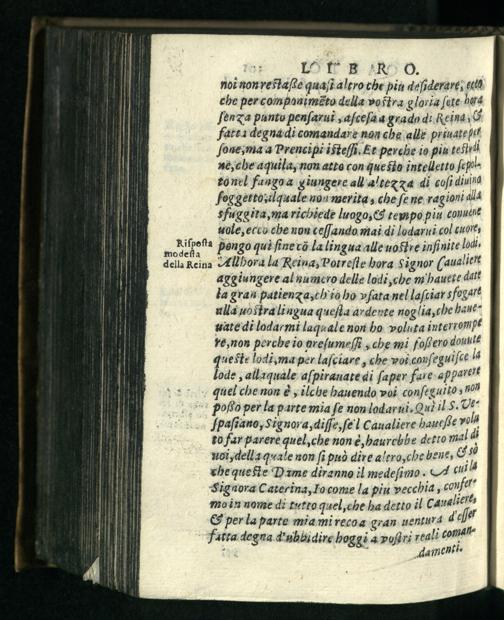 LIBRO.
noi non restaße quasi altro che piu desiderare, ecco
che per componimẽto della vostra gloria sete hora
senza punto pensarui, ascesa a grado di Reina, &
fatta degna di comandare non che alle priuate per
sone, ma a Prencipi istessi. Et perche io piu testudi
ne, che aquila, non atto con questo intelletto sepol-
to nel fango a giungere all'altezza di cosi diuino
soggetto, ilquale non merita, che se ne ragioni alla
sfuggita, ma richiede luogo, & tempo piu conuene
uole, ecco che non cessando mai di lodarui col cuore,
pongo quì fine cō la lingua alle uostre infinite lodi.
Risposta
modesta
della Reina
Allhora la Reina, Potreste hora Signor Caualiere
aggiungere al numero delle lodi, che m'hauete date
la gran patienza, ch'io ho vsata nel lasciar sfogare
alla uostra lingua questa ardente uoglia, che haue-
uate di lodarmi laquale non ho voluta interrompe
re, non perche io presumessi, che mi foßero douute
queste lodi, ma per lasciare, che voi conseguisce la
lode, allaquale aspirauate di saper fare apparere
quel che non è, ilche hauendo voi conseguito, non
poßo per la parte mia se non lodarui. Quì il S. Ve-
spasiano, Signora, disse, se'l Caualiere hauesse volu
to far parere quel, che non è, haurebbe detto mal di
uoi, della quale non si può dire altro, che bene, & sò
che queste Dame diranno il medesimo. A cui la
Signora Caterina, Io come la piu vecchia, confer-
mo in nome di tutto quel, che ha detto il Caualiere,
& per la parte mia mi reco a gran uentura d'esser
fatta degna d'ubbidire hoggi a vostri reali coman-
damenti.